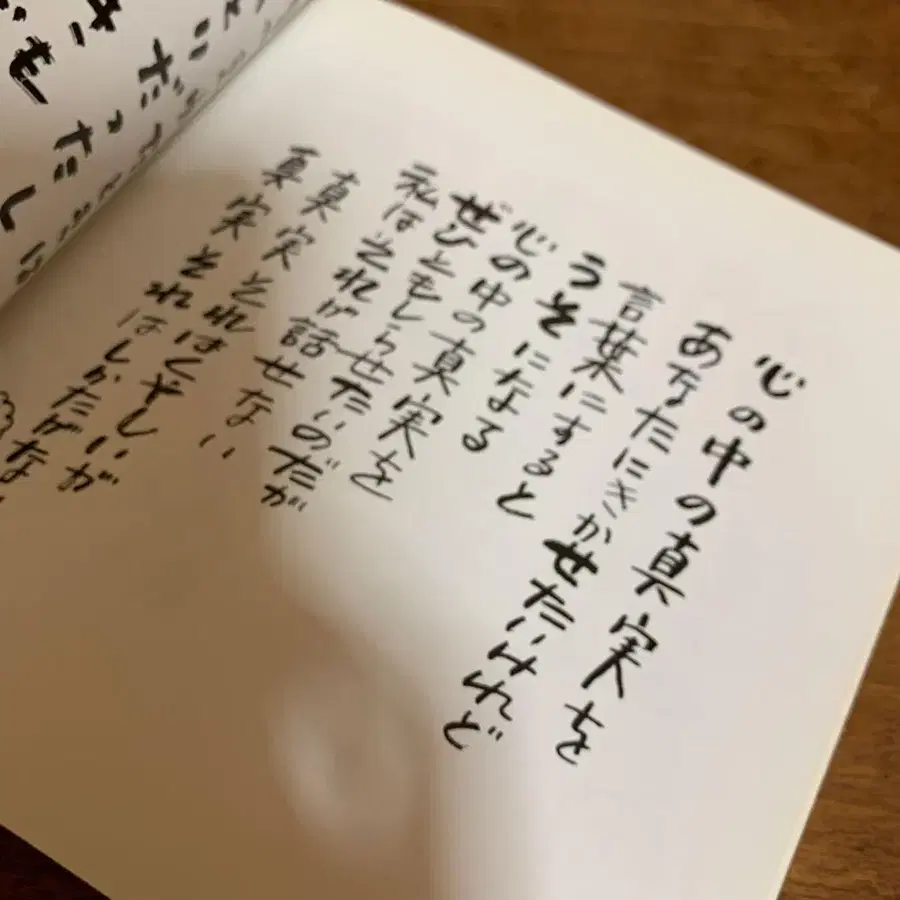 心の中の真実を
あなたにきかせたいけれど
言葉にすると
うそになる
心の中の真実を
ぜひともしらせたいのだが
私はそれが話せない
真実それはくやしいが
真実それはしかたがない